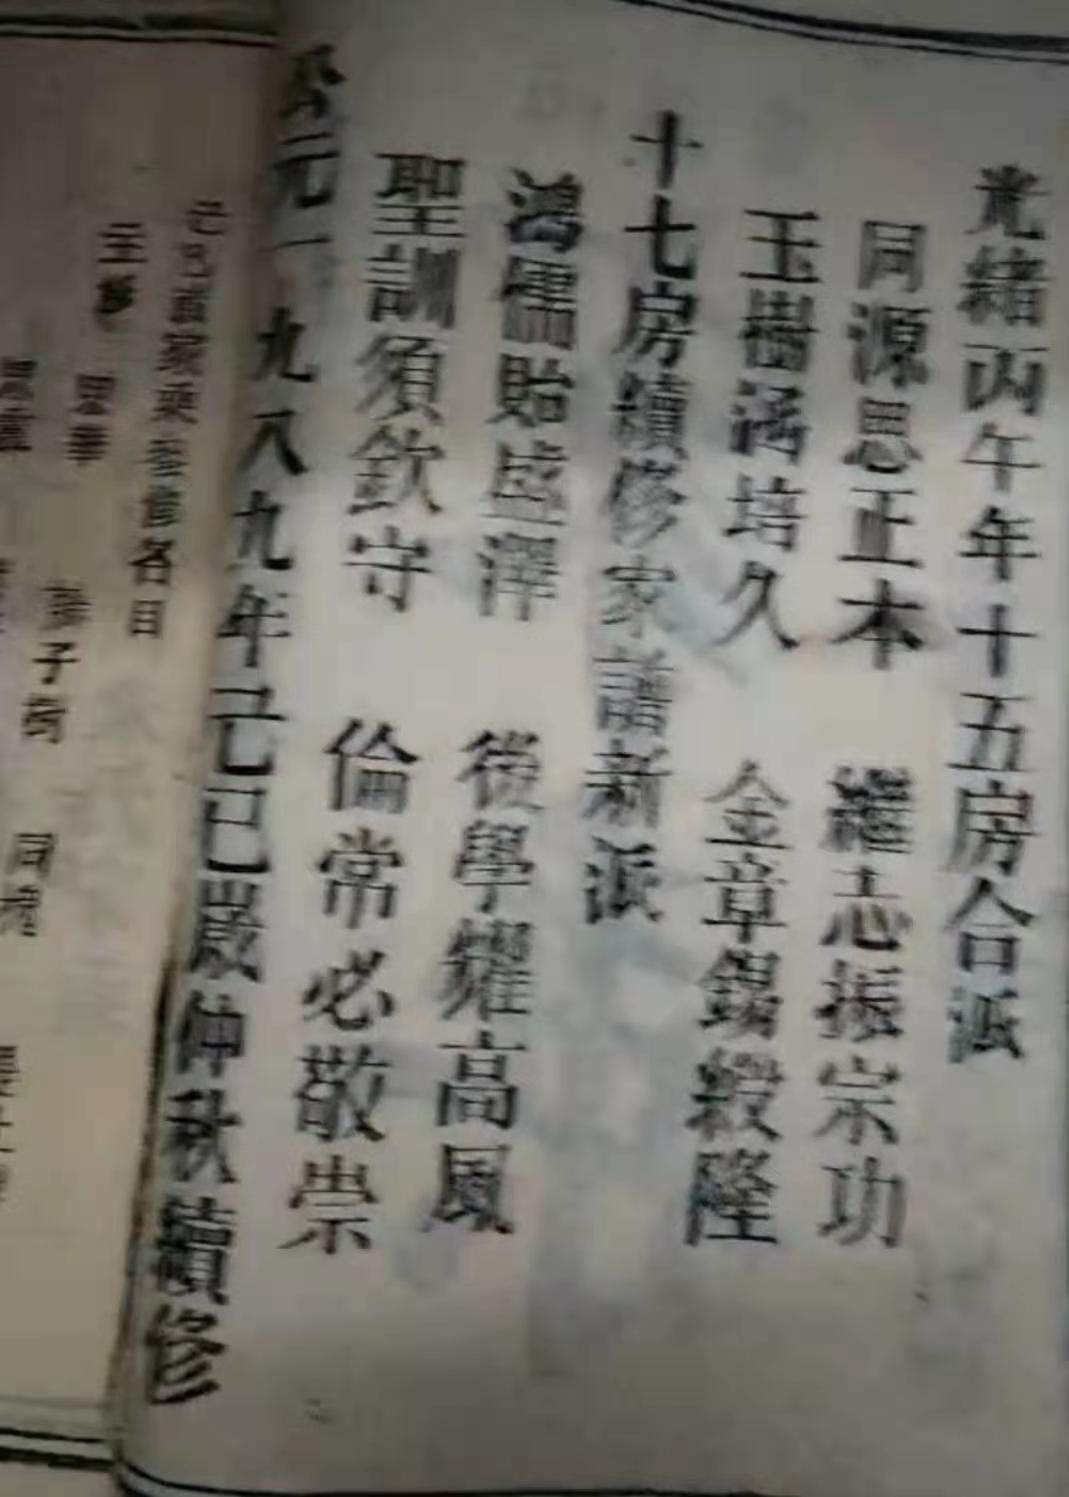 光緒丙午年十五房合派
同源思正本 繼志振宗功
玉樹滿培久 金章錫縀隆
十七房續修家譜新派
鴻儒貽盛澤 後學耀高風
聖訓須欽守 倫常必敬崇
公元一九八九年己巳嵗仲秋續修
名目
子 同